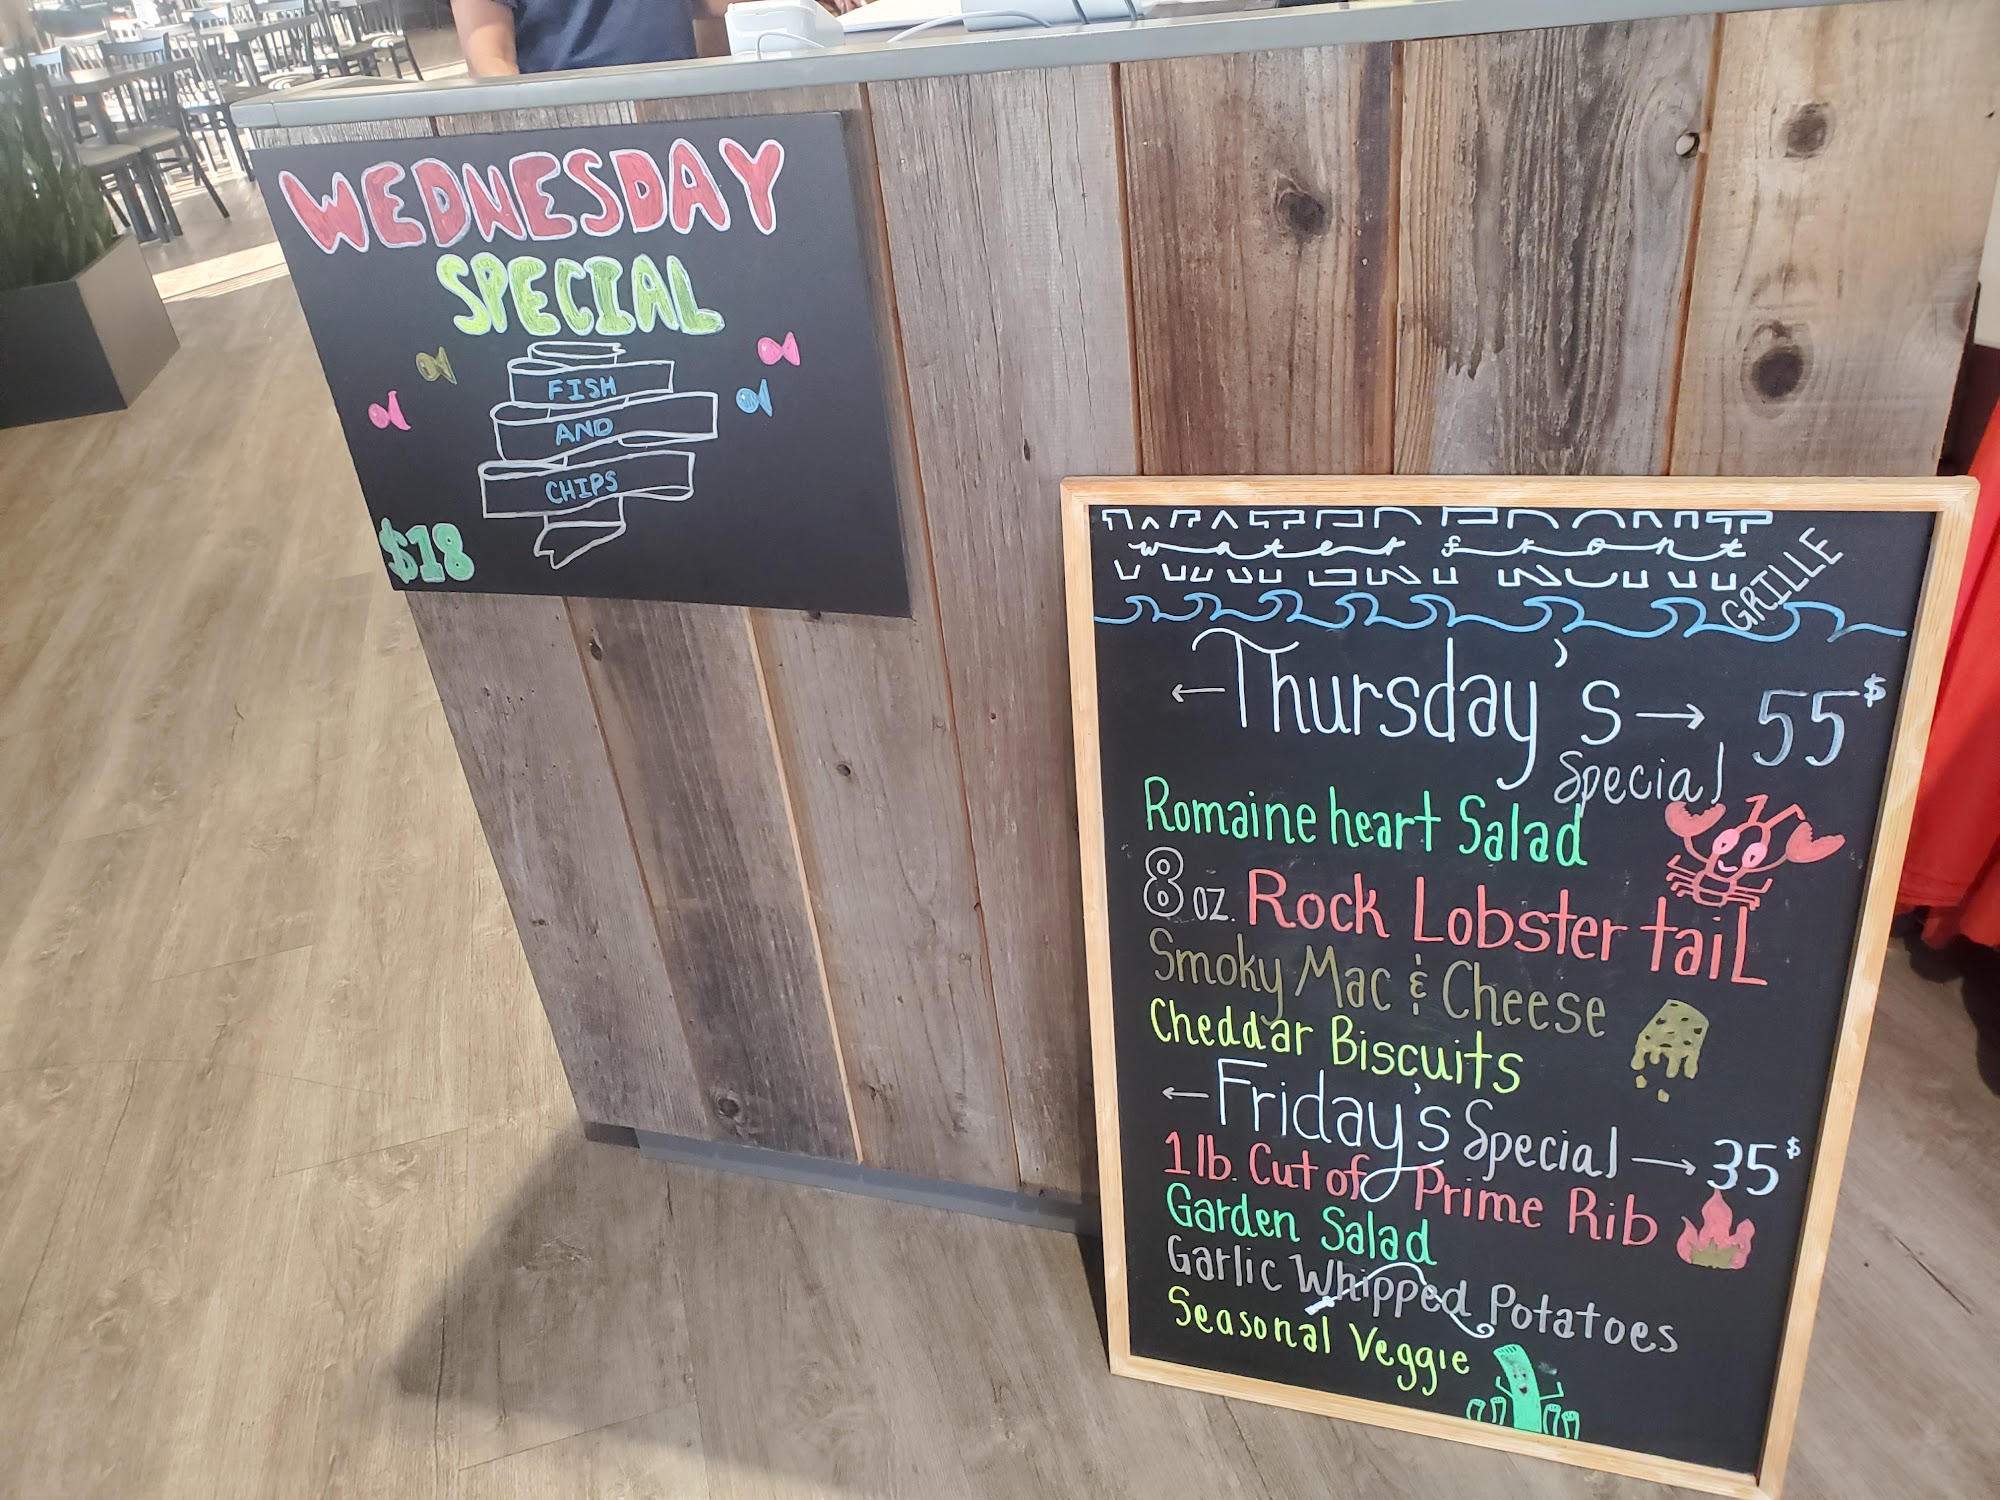 WEDNESDAY
SPECIAL
FISH
AND
CHIPS
$18
WATERFRONT
water front
GRILLE
Thursday's 55$
Special
Romaine heart Salad
8 oz. Rock Lobster taiL
Smoky Mac & Cheese
Cheddar Biscuits
Friday's Special 35$
1 lb. Cut of Prime Rib
Garden Salad
Garlic Whipped Potatoes
Seasonal Veggie